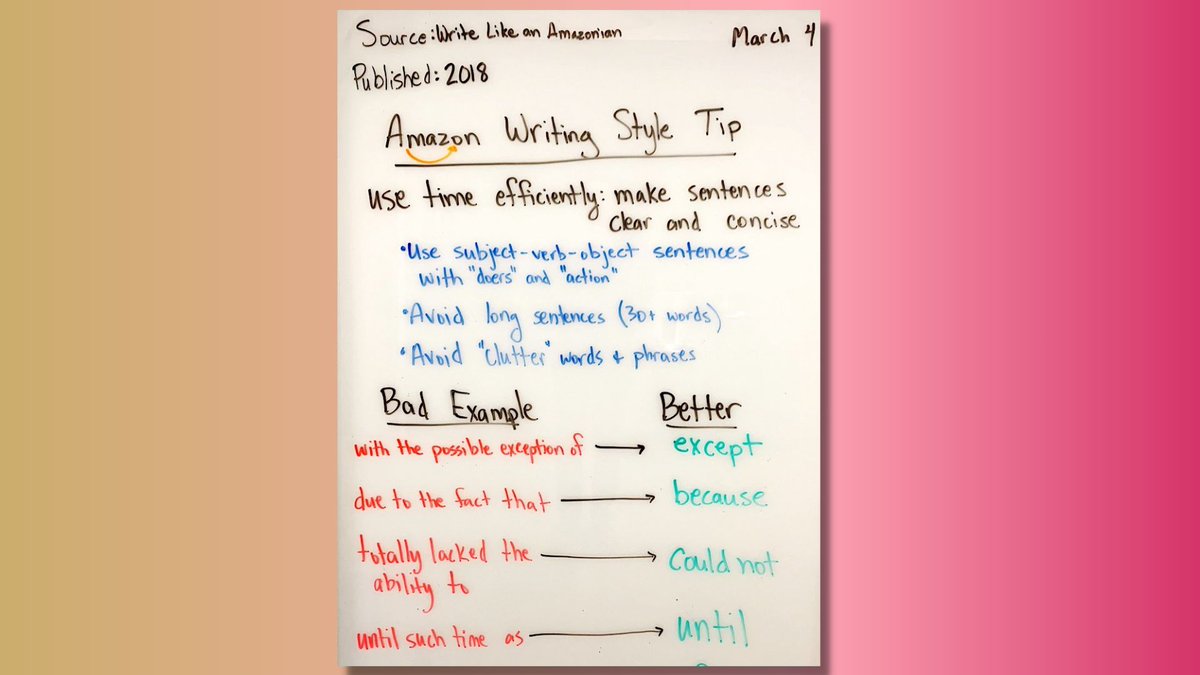 Source: Write Like an Amazonian
March 4
Published: 2018
Amazon Writing Style Tip
use time efficiently: make sentences
clear and concise
•Use subject-verb-object sentences
with "doers" and "action"
•Avoid long sentences (30+ words)
•Avoid "clutter" words + phrases
Bad Example Better
with the possible exception of → except
due to the fact that → because
totally lacked the → Could not
ability to
until such time as → until